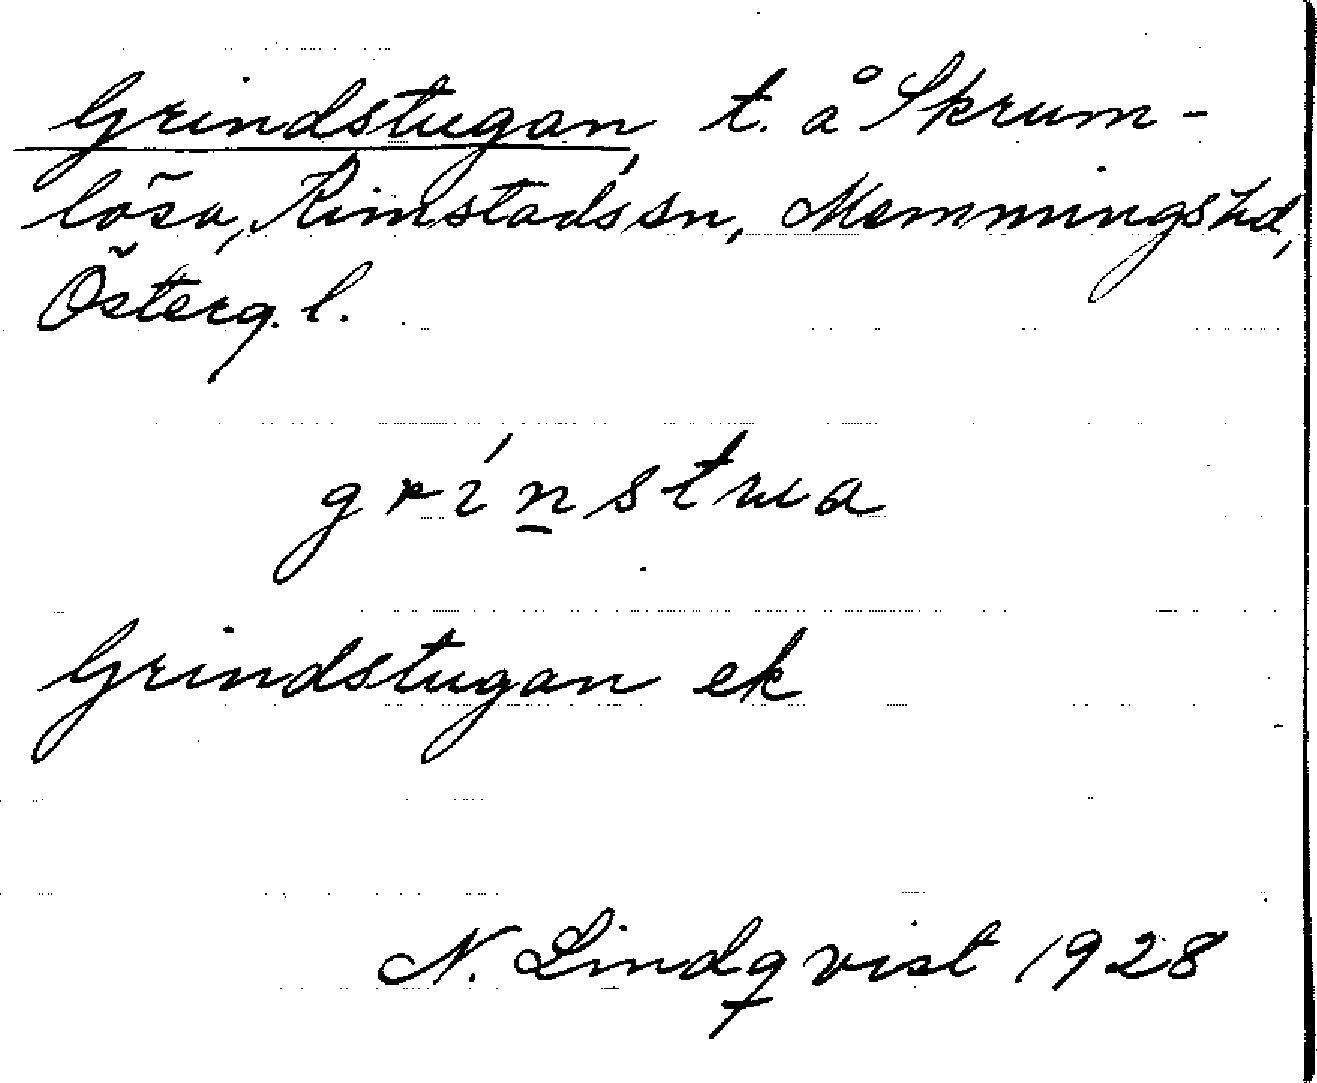 Grindstugan, t. å Skrum-
lösa, Rimstads sn, Memmings hd,
Österg. l.
grínstua
Grindstugan ek
N. Lindqvist 1928